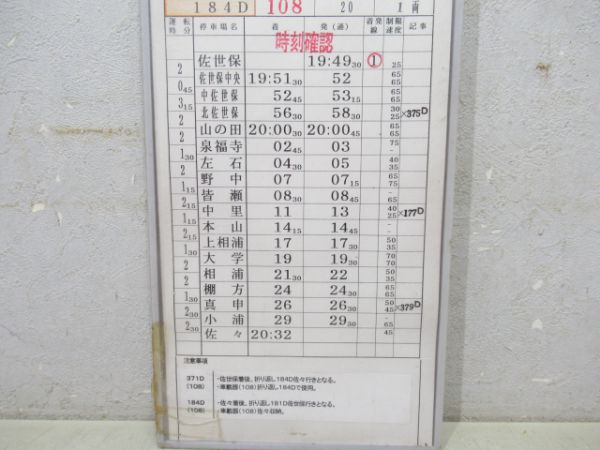 184D 108 20 1両
運転時分 停車場名 着 発(通) 着発線 制限速度 記事
時刻確認
佐世保 19:49 30 ① 25
2
佐世保中央 19:51 30 52 65 65
0 45
中佐世保 52 45 53 15 65 65
3 15
北佐世保 56 30 58 30 30 25 ×375D
2
山の田 20:00 30 20:00 45 65 65
2
泉福寺 02 45 03 75 -
1 30
左石 04 30 05 40 35
2
野中 07 07 15 65 75
1 15
皆瀬 08 30 08 45 - -
2 15
中里 11 13 40 25 ×177D
1 15
本山 14 15 14 45 - -
2 15
上相浦 17 17 30 50 35
1 30
大学 19 19 30 70 70
2
相浦 21 30 22 50 40
2
棚方 24 24 30 65 65
1 30
真申 26 26 30 50 45 ×379D
2 30
小浦 29 29 30 65 -
2 30
佐々 20:32 45
注意事項
371D ・佐世保着後、折り返し184D佐々行きとなる。
(108) ・車載器(108)折り返し184Dで使用。
184D ・佐々着後、折り返し181D佐世保行きとなる。
(108) ・車載器(108)佐々収納。